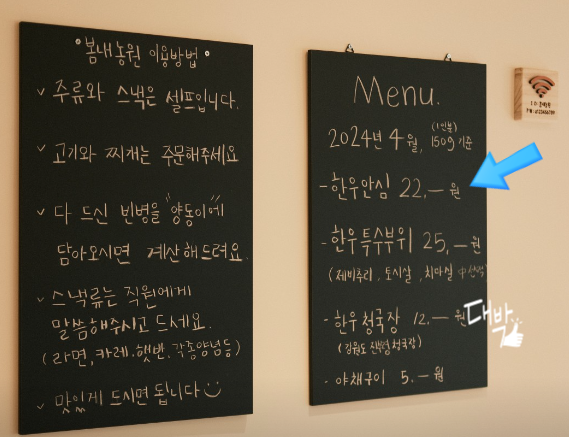 °봄내농원 이용방법°
✓ 주류와 스낵은 셀프입니다.
✓ 고기와 찌개는 주문해주세요
✓ 다 드신 빈병을 "양동이"에
담아오시면 계산해드려요.
✓ 스낵류는 직원에게
말씀해주시고 드세요.
(라면, 카레, 햇반, 각종양념등)
✓ 맛있게 드시면 됩니다
Menu.
(1인분)
2024년 4월, 150g 기준
- 한우안심 22,— 원
- 한우특수부위 25,— 원
(제비추리, 토시살, 치마살 中 선택)
- 한우청국장 12,— 원
(강원도 청국장)
- 야채구이 5,— 원
대박